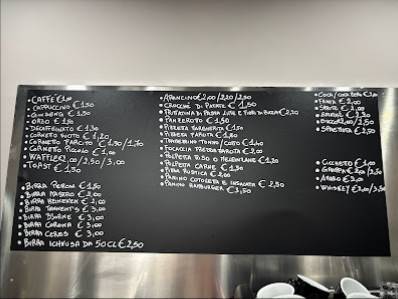 • CAFFÈ €1,00
• CAPPUCCINO €1,50
• GINSENG €1,50
• ORZO €1,50
• DECAFFEINATO €1,30
• CORNETTO VUOTO €1,20
• CORNETTO FARCITO €1,50/1,70
• CORNETTO PICCOLO €1,00
• WAFFLE €2,00/2,50/3,00
• TOAST €1,50
• BIRRA PERONI €1,50
• BIRRA NASTRO €2,00
• BIRRA HEINEKEN €2,00
• BIRRA TENNENT'S €3,00
• BIRRA €3,00
• BIRRA CORONA €3,00
• BIRRA CERES €3,00
• BIRRA ICHNUSA DA 50CL €2,50
• ARANCINO €2,00/2,20/2,50
• CROCCHÈ DI PATATE €1,50
• FRITTATINA DI PASTA €2,50
• PANZEROTTO €1,50
• PIZZETTA MARGHERITA €1,50
• PIZZETTA FARCITA €1,80
• TRAMEZZINO TONNO/COTTO €1,40
• FOCACCIA PRESSATA FARCITA €2,00
• POLPETTA RISO O MELENZANE €1,20
• POLPETTA CARNE €1,50
• PIZZA RUSTICA €2,00
• PANINO COTOLETTA E INSALATA €2,50
• PANINO HAMBURGER €3,50
• FANTA €2,00
• SPRITE €2,00
• €2,50
• SPREMUTA €2,50
• CICCHETTO €1,00
• GRAPPA €2,00/2,50
• AMARO €3,00
• WHISKEY €3,00/3,50